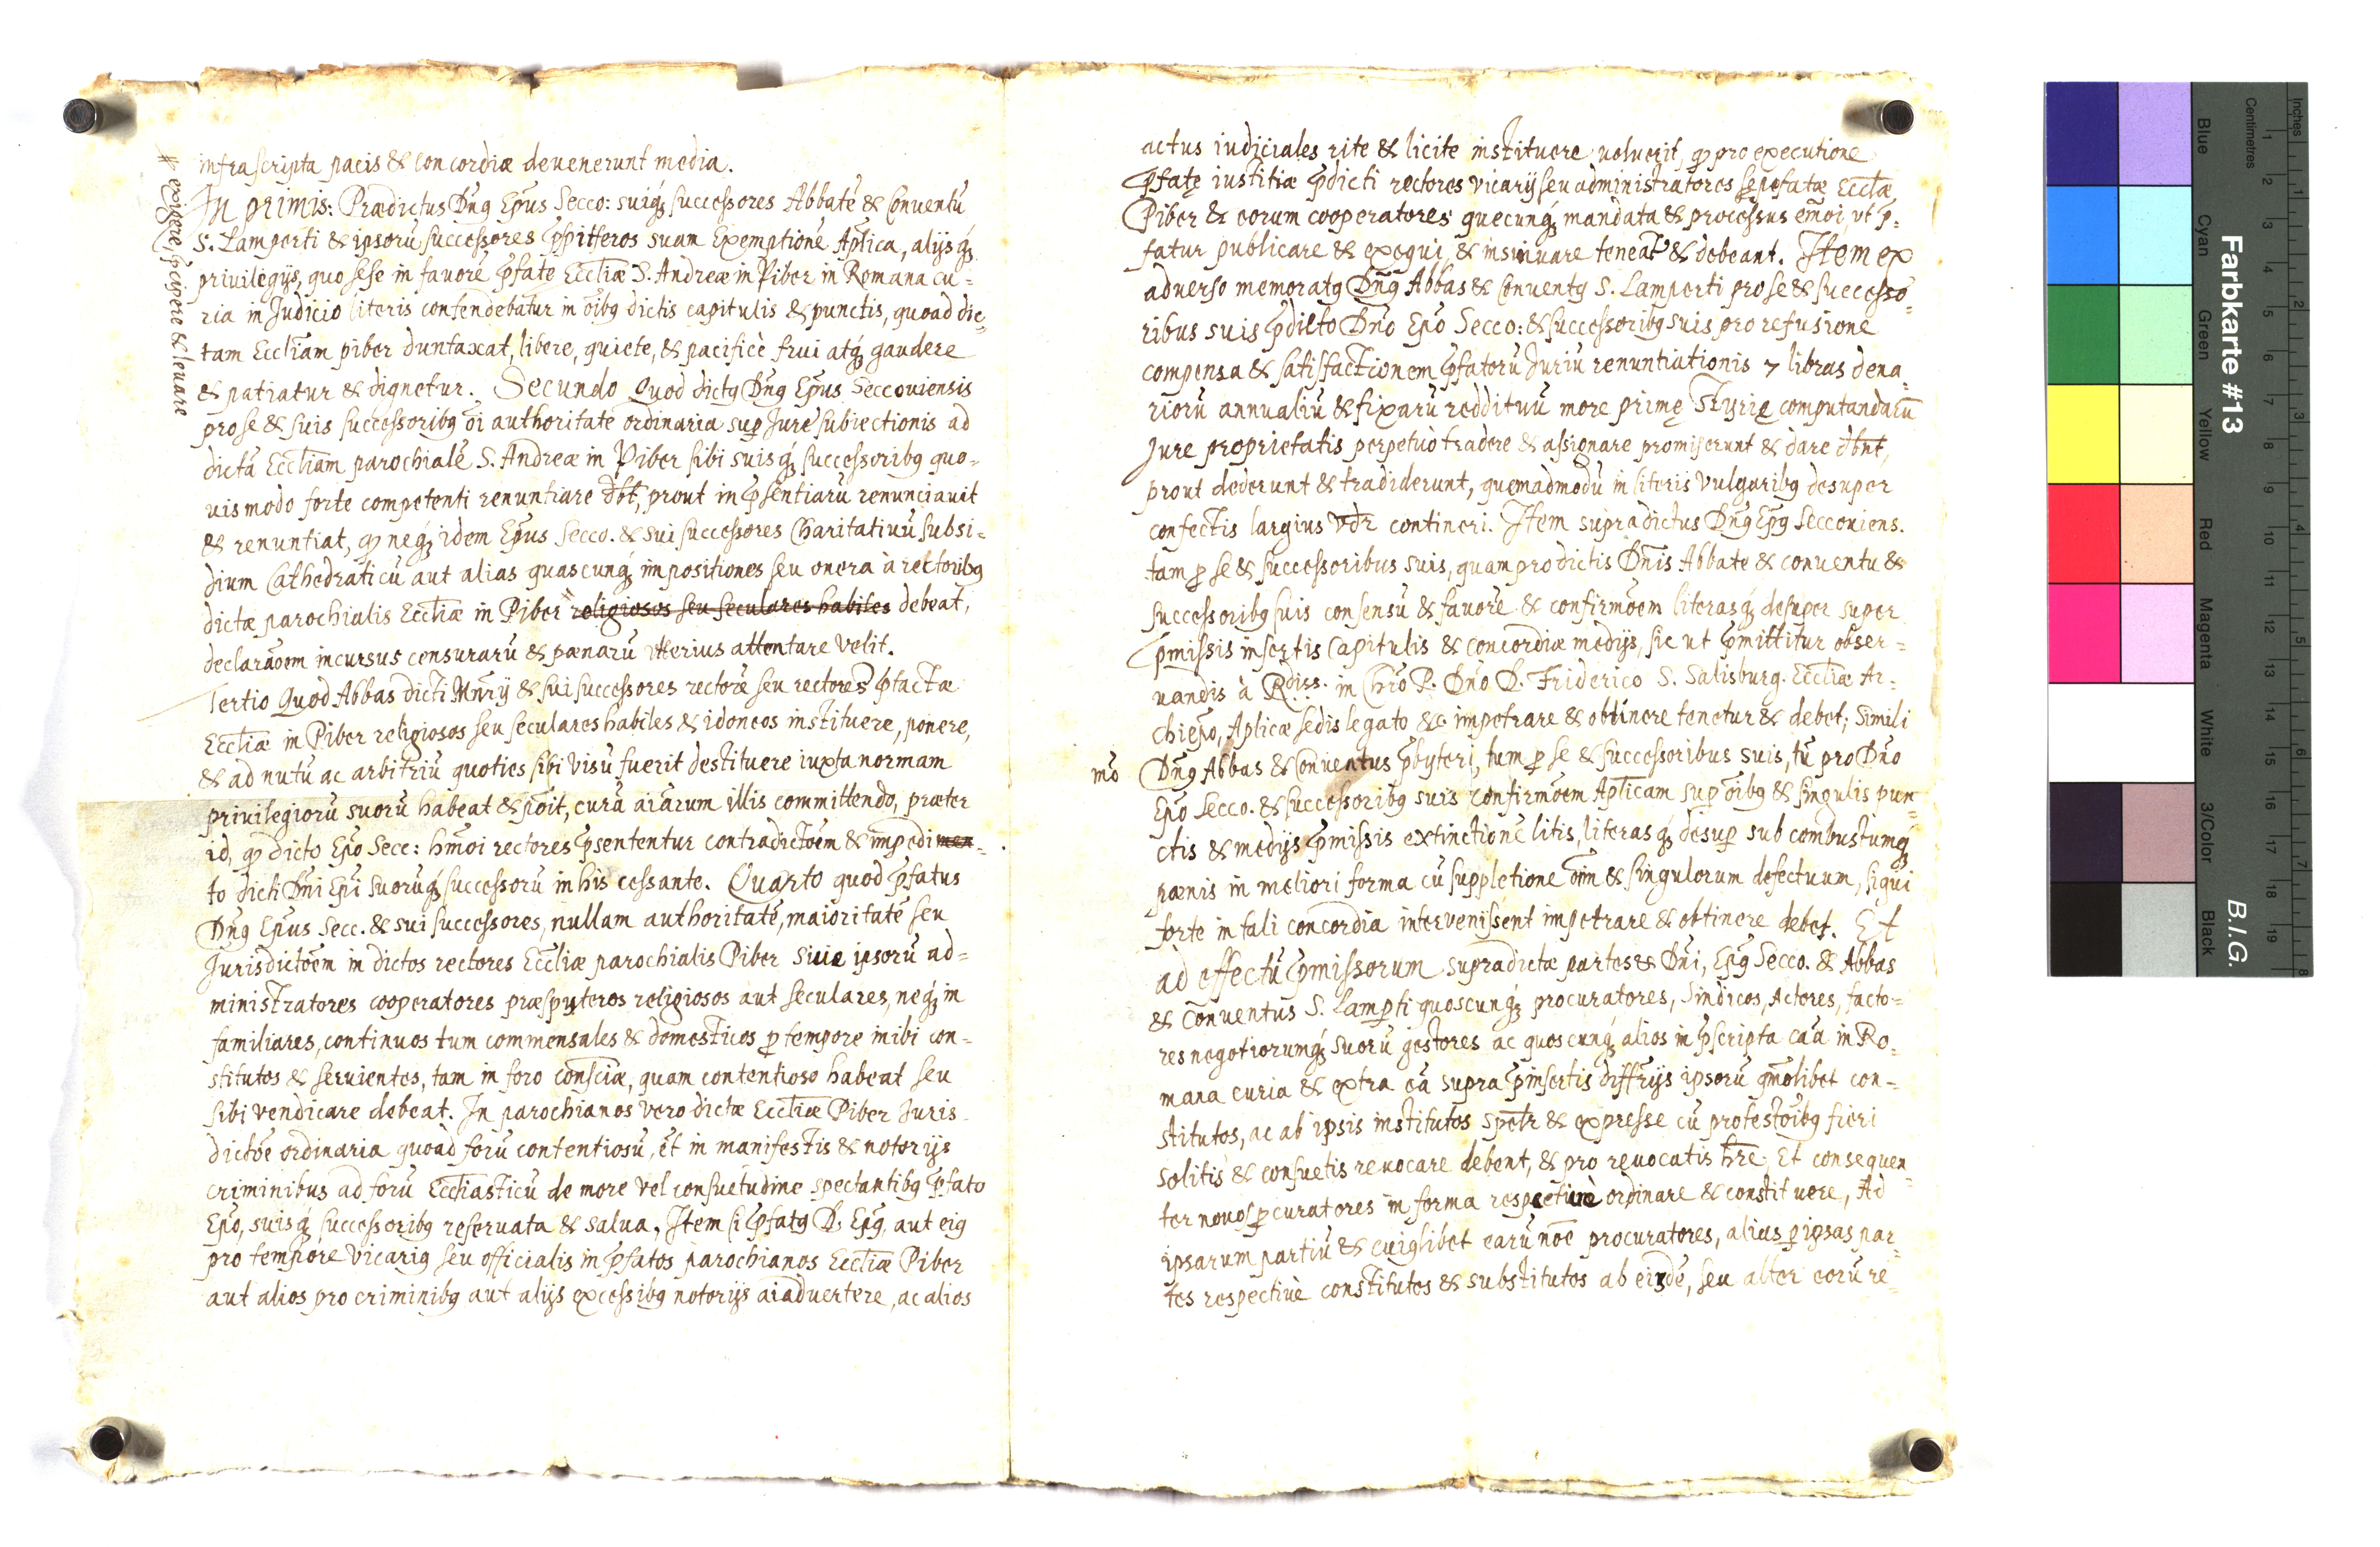 infrascripta pacis & concordiæ deuenerunt media.
In primis: Prædictus Dn̄9 Ep̄us Secco: suiq́ꝫ successores Abbatē & Conventū
S. Lamperti & ipsorū successores suam Exemptionē Ap̄lica, alijsq́ꝫ
privilegijs, quo sese in favorē p̄fatę Eccl̄iæ S. Andreæ in Piber in Romana cu=
ria in Judicio literis contendebatur in oīb9 dictis capitulis & punctis, quoad dic=
tam Eccl̄iam piber duntaxat, libere, quiete, & pacificè frui atq́ꝫ gaudere
& patiatur & dignetur. Secundo Quod dict9 Dn̄9 Ep̄us Seccouiensis
pro se & suis successorib9 oī authoritate ordinaria sup̱ Jure subiectionis ad
dictā Eccl̄iam parochialē S. Andreæ in Piber sibi suisq́ꝫ successorib9 quo=
uis modo forte competenti renuntiare dēt, prout in p̄sentiarū renunciauit
& renuntiat, qꝫ neq́ꝫ idem Ep̄us Secco. & sui successores Charitatiuū subsi=
dium Cathedraticū aut alias quascunq́ꝫ impositiones seu onera à rectorib9
dictæ parochialis Eccl̄iæ in Piber religiosos seu seculares habiles debeat,
# exigere, p̱cipere & leuare
declarāōem incursus censurarū & pænarū vlterius attentare velit.
Tertio Quod Abbas dicti Mn̄rij & sui successores rectorē seu rectores p̄factæ
Eccl̄iæ in Piber religiosos seu seculares habiles & idoneos instituere, ponere,
& ad nutū ac arbitriū quoties sibi visū fuerit destituere iuxta normam
privilegiorū suorū habeat & p̄oit, curā aīarum illis committendo, præter
id, qꝫ dicto Ep̄o Secc: hm̄oi rectores p̄sententur contradictōem & impedimen=
to dicti Dn̄i Ep̄i suorūq́ꝫ successorū in his cessante. Quarto quod p̄fatus
Dn̄9 Ep̄us Secc. & sui successores, nullam authoritatē, maioritatē seu
Jurisdictōem in dictos rectores Eccl̄iæ parochialis Piber siue ipsorū ad=
ministratores cooperatores præspyteros religiosos aut seculares, neq́ꝫ in
familiares, continuos tum commensales & domesticos p̱ tempore inibi con=
stitutos & seruientes, tam in foro consc̄iæ, quam contentioso habeat seu
sibi vendicare debeat. In parochianos vero dictæ Eccl̄iæ Piber Juris=
dictōe ordinaria quoad forū contentiosū, et in manifestis & notorijs
criminibus ad forū Eccl̄iasticū de more vel consuetudine spectantib9 p̄fato
Ep̄o, suisq́ꝫ successorib9 reseruata & salua, Item si p̄fat9 D. Ep̄9, aut ei9
pro tempore Vicari9 seu officialis in p̄fatos parochianos Eccl̄iæ Piber
aut alios pro criminib9 aut alijs excessib9 notorijs aīaduertere, ac alios
actus iudiciales rite & licite instituere uoluerit, qꝫ pro executione
p̄fatę iustitiæ p̄dicti rectores vicarij seu administratores sępefatæ Eccl̄æ
Piber & eorum cooperatores quecunq́ꝫ mandata & processus em̄oi, vt p̄=
fatur publicare & exequi, & insinuare teneāt & debeant. Item ex
aduerso memorat9 Dn̄9 Abbas & Conuent9 S. Lamperti pro se & successo=
ribus suis p̄dicto Dn̄o Ep̄o Secco: & successorib9 suis pro refusione
compensa & satisfactionem p̄fatorū Juriū renuntiationis 7 libras dena=
riorū annualiū & fixarū reddituū more primę Styrię computandarū
Jure proprietatis perpetuò tradere & assignare promiserunt & dare db̄nt,
prout dederunt & tradiderunt, quemadmodū in literis vulgarib9 desuper
confectis largius vd̄r contineri. Item supradictus Dn̄9 Ep̄9 Seccouiens.
tam p̱ se & successoribus suis, quam pro dictis Dn̄is Abbate & conuentu &
successorib9 suis consensū & fauorē & confirmōem literasq́ꝫ desuper super
p̄missis insertis Capitulis & concordiæ medijs, sic ut p̄mittitur obser=
uandis à Rdiss. in Chr̄o P. Dn̄o D. Friderico S. Salisburg. Eccl̄iæ Ar=
chiep̄o, Ap̄licæ sedis legato &c impetrare & obtinere tenetur & debet; Simili
mō Dn̄9 Abbas & Conuentus p̄byteri, tum p̱ se & successoribus suis, tū pro Dn̄o
Ep̄o Secco. & successorib9 suis confirmōem Ap̄licam sup̱ oīb9 & singulis pun=
ctis & medijs p̄missis extinctionē litis, literasq́ꝫ desup̱ sub combustumq́ꝫ
pænis in meliori forma cū suppletione oīm & singulorum defectuum, siqui
forte in tali concordia intervenissent impetrare & obtinere debet. Et
ad effectū p̄missorum supradictæ partes & Dn̄i, Ep̄9 Secco. & Abbas
& Conuentus S. Lamp̱ti quoscunq́ꝫ procuratores, Sindicos, Actores, facto=
res negotiorumq́ꝫ suorū gestores ac quoscunq́ꝫ alios in p̄scripta caā in Ro=
mana curia & extra eā supra p̄insertis diffr̄ijs ipsorū qm̄olibet con=
stitutos, ac ab ipsis institutos spetr & expresse cū protestōib9 fieri
solitis & consuetis reuocare debent, & pro reuocatis hr̄e, Et consequen=
ter nouos p̱curatores in forma respectiuè ordinare & constituere, Ad
ipsarum partiū & cui9libet earū nōe procuratores, alius p̱ ipsas par=
tes respectiuè constitutos & substitutos ab eisdē, seu alter eorū re=